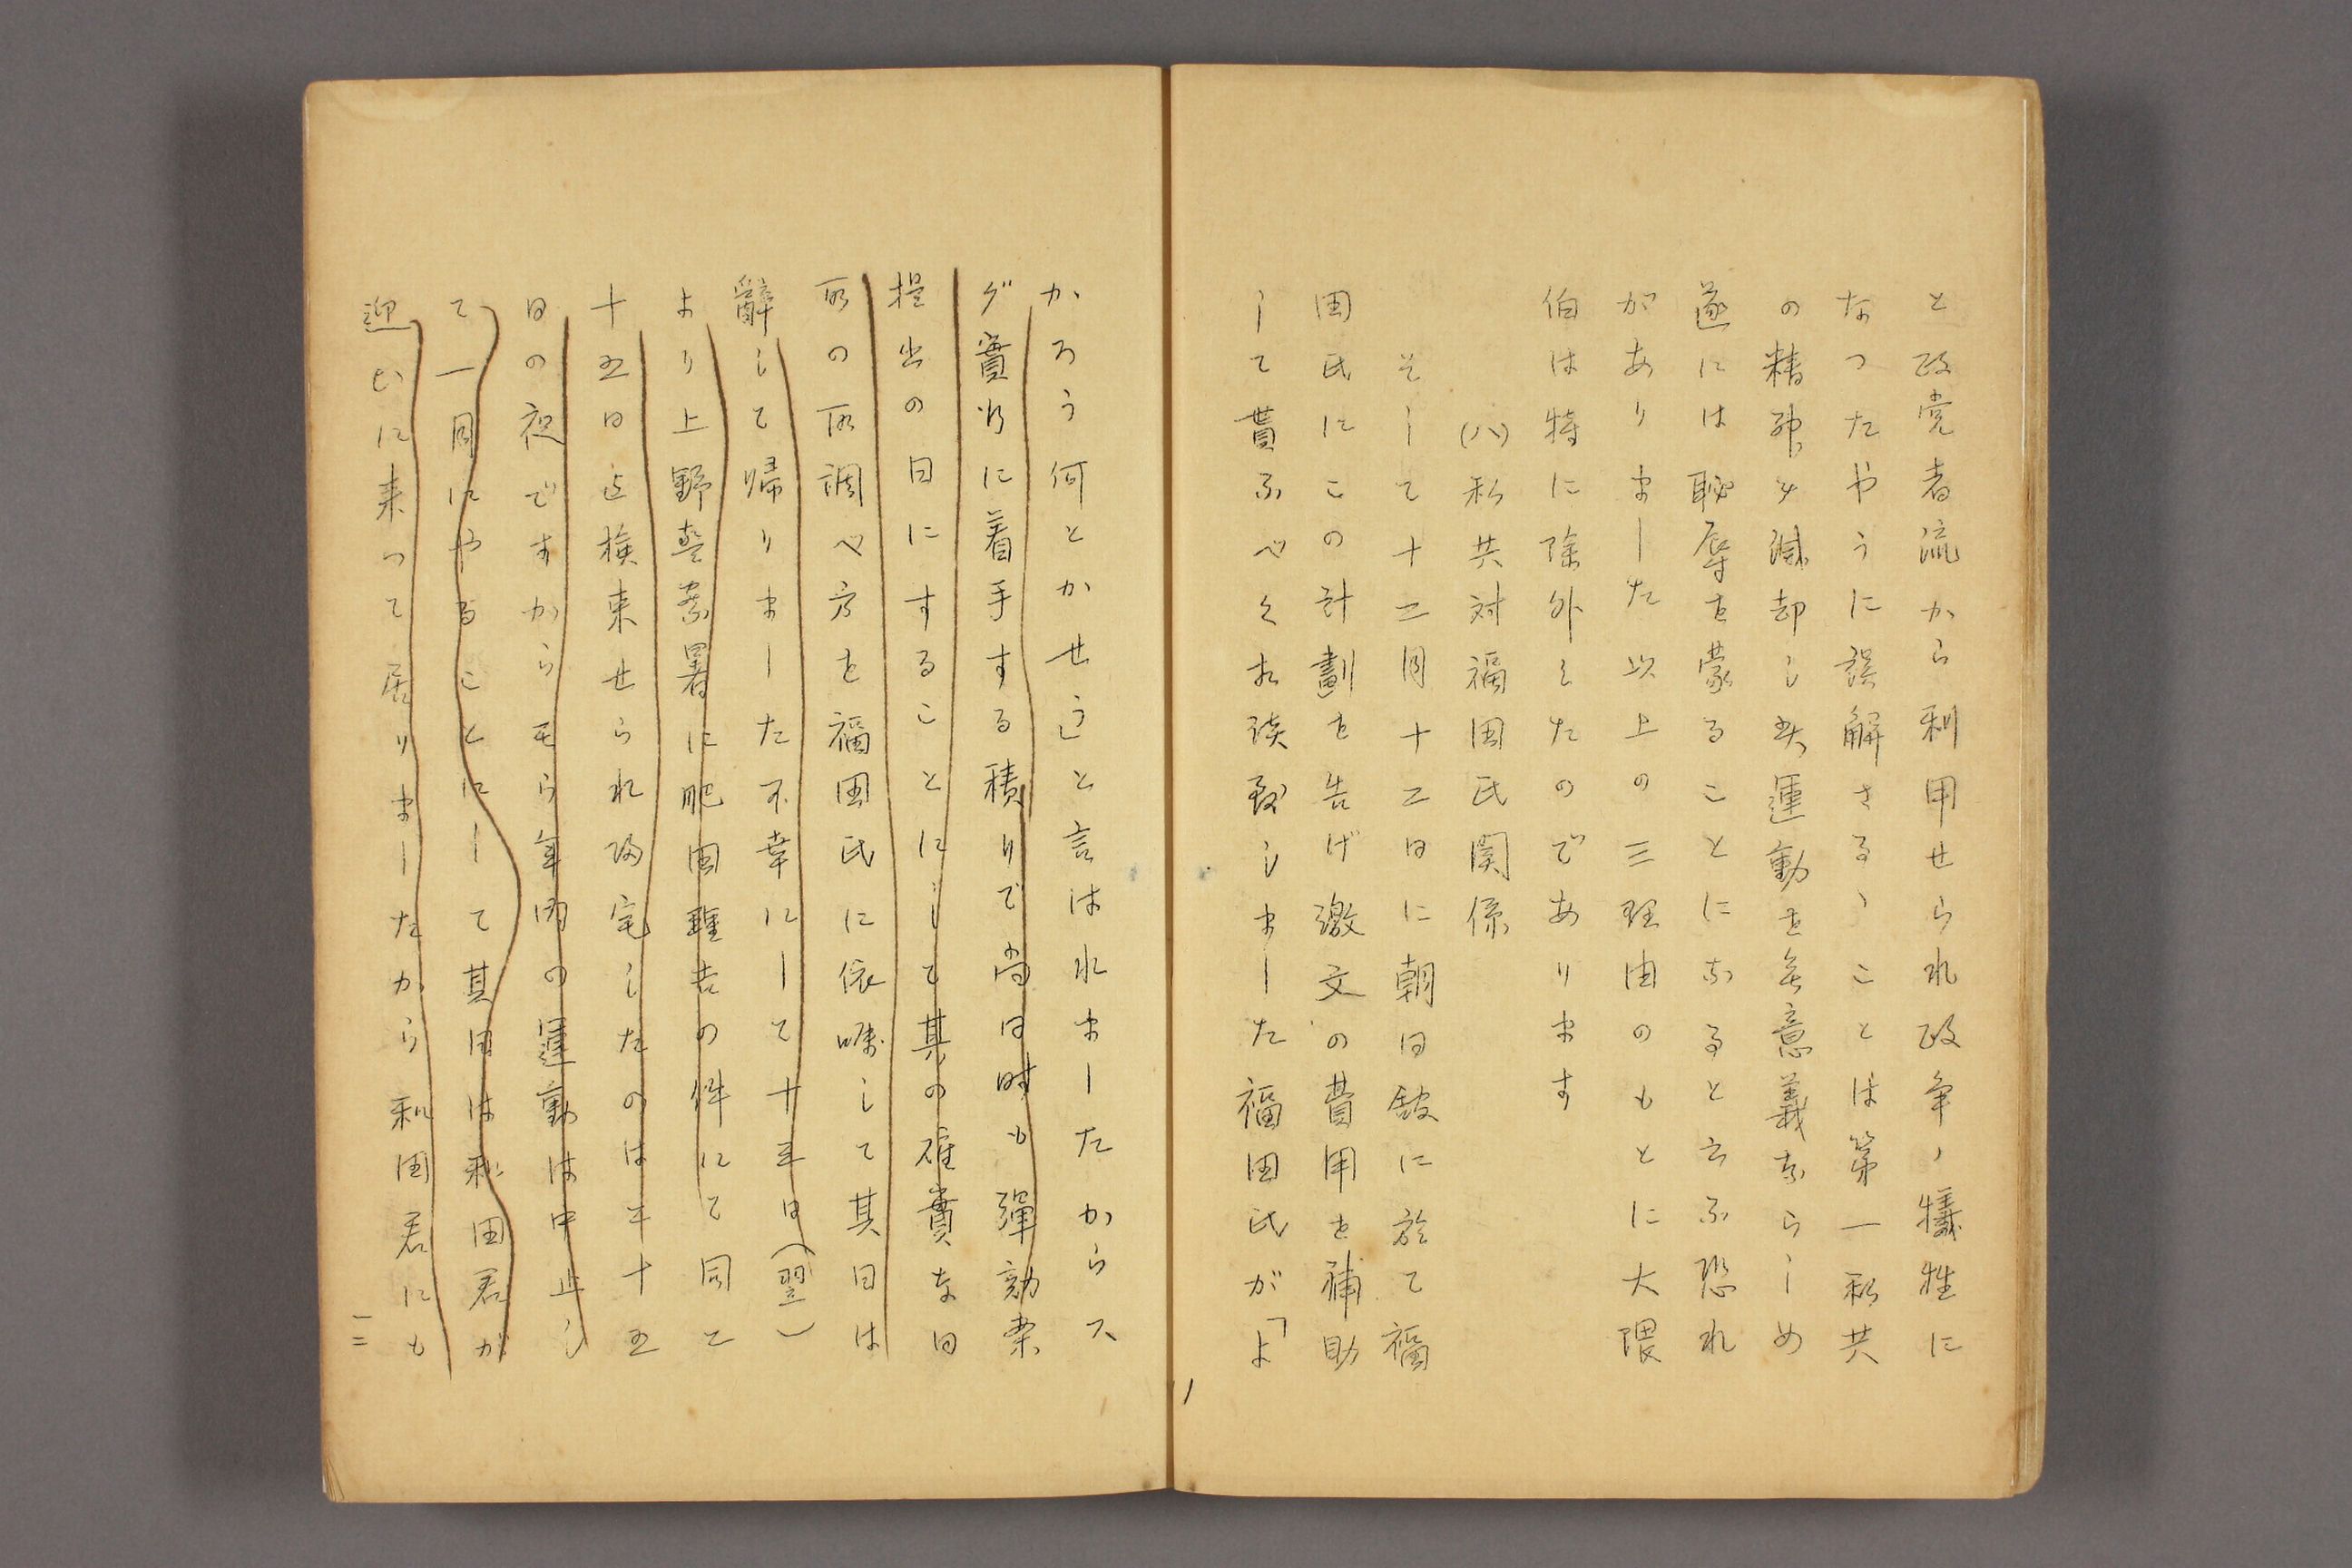 と政党者流から利用せられ政争ノ犠牲に
なつたやうに誤解さるゝことは第一私共
の精神を滅却し此運動を無意義ならしめ
遂には恥辱を蒙ることになると云ふ恐れ
がありました以上の三理由のもとに大隈
伯は特に除外したのであります
(八)私共対福田氏関係
そして十二月十二日に朝日館に於て福
田氏にこの計劃を告げ激文の費用を補助
して貰ふべく相談致しました福田氏が「よ
かろう何とかせう」と言はれましたからス
グ實行に着手する積りで尚日時も弾劾案
提出の日にすることにして其の確實な日
取の取調べ方を福田氏に依嘱して其日は
辭して帰りました不幸にして十三日(翌)
より上野警察署に肥田理吉の件にて同
十五日迄検束せられ帰宅したのは 十五
日の夜ですからモう年内の運動は中止し
て一月にやることにして其日は和田君が
迎ひに来つて居りましたから和田君にも
一二